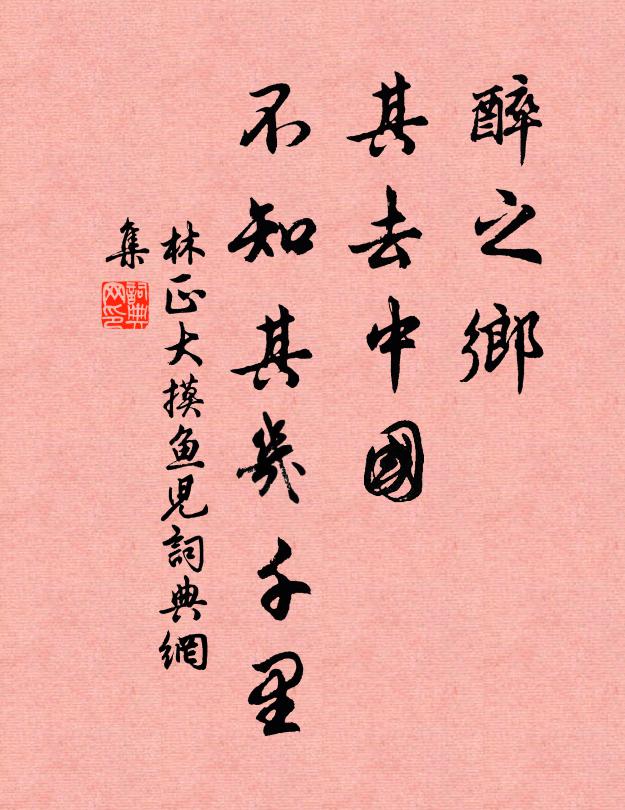 醉之鄉
其去中國
不知其幾千里
林正大摸鱼児詞典網
集
詞典
网印